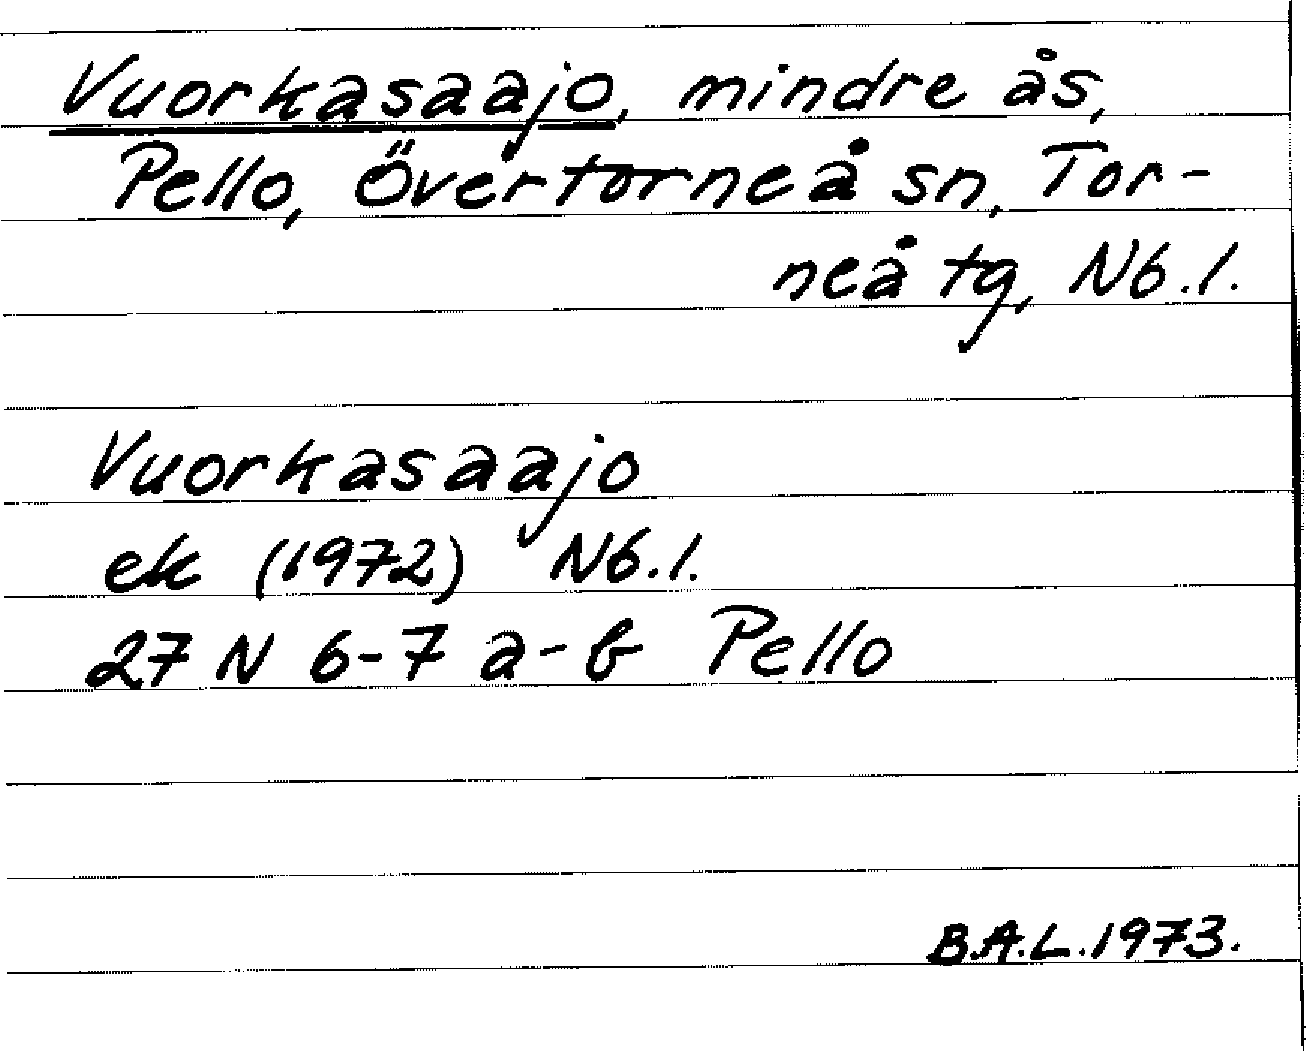 Vuorkasaajo, mindre ås,
Pello, Övertorneå sn, Tor-
neå tg, Nb.l.
Vuorkasaajo
ek (1972) Nb.l.
27 N 6-7 a-b Pello
B.A.L. 1973.